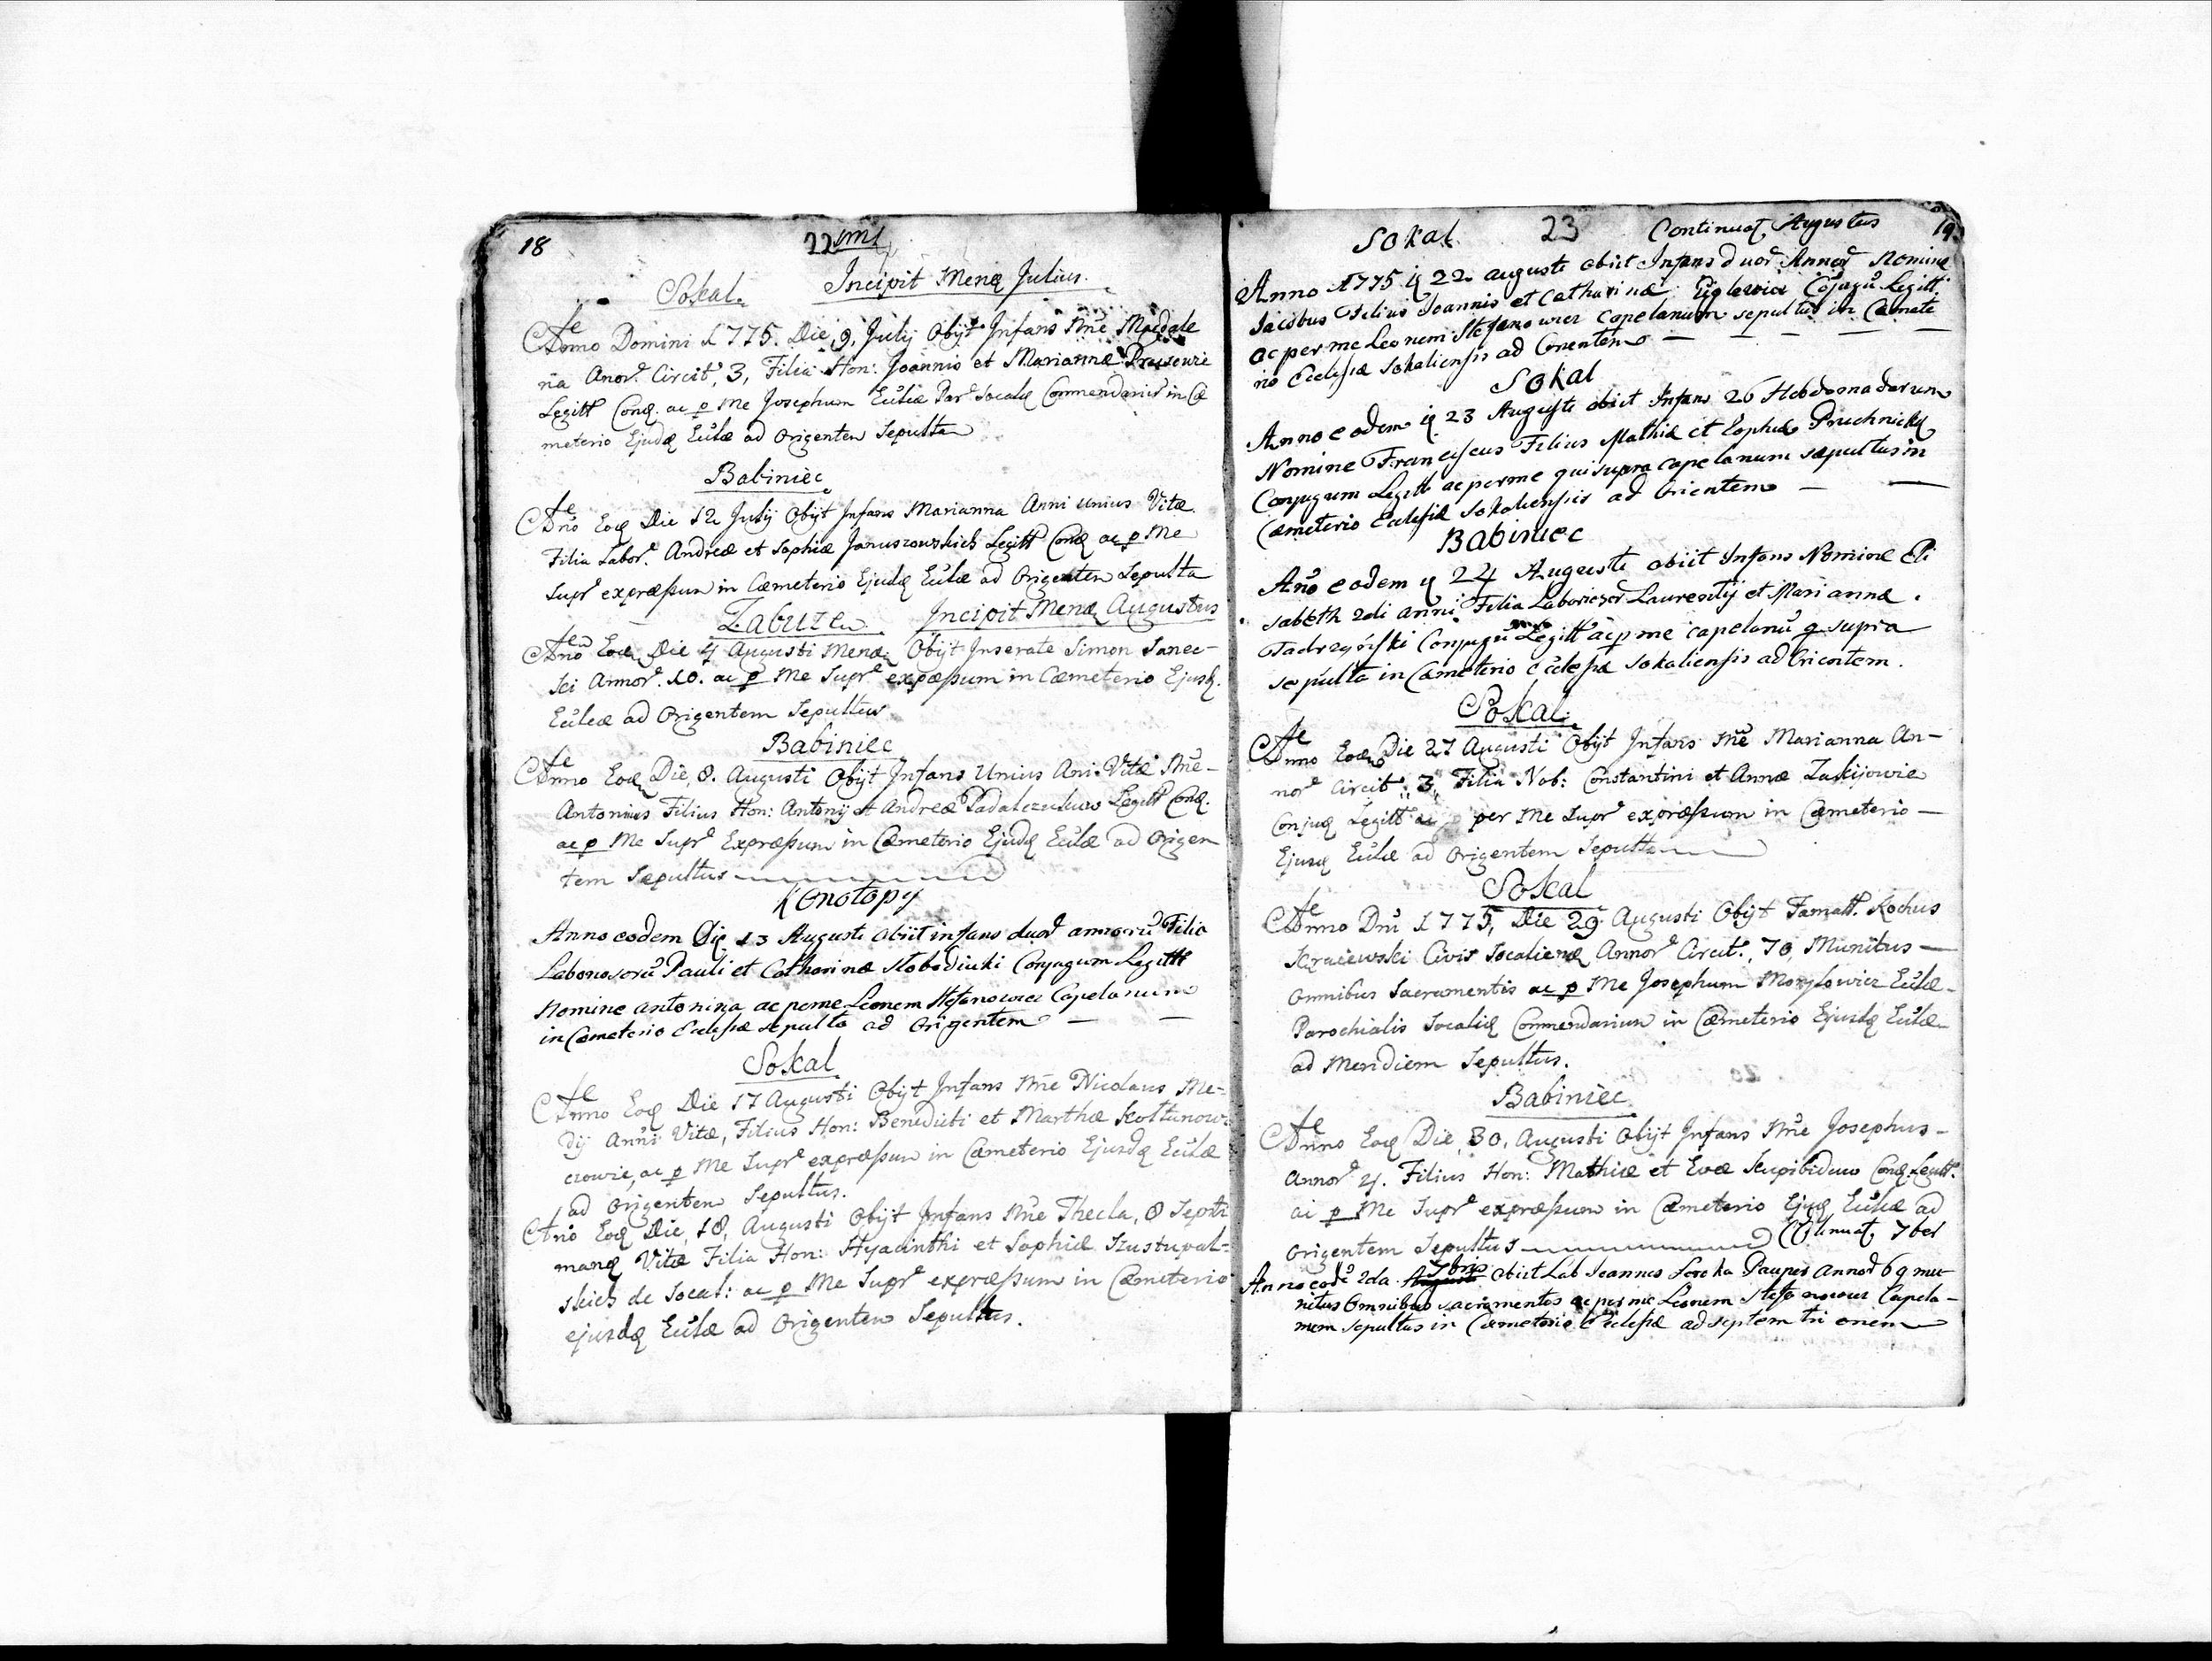 18
22
Sokal. Incipit Menq Julius.
Anno Domini 1775. Die, 9, Julij Obijt Infans Nne Magdale
na Anor. Circit, 3, Filia Hon: Joannis et Mariannæ
Legitt Conq. ac p Me Josephum Eulæ Par Socaliq Commendariu in Cæ
meterio Ejudq Eulæ ad Origentem Sepulta
Babiniec
Ano Eoq Die 12 Julij Obijt Infans Marianna Anni Unius Vitæ
Filia Labor. Andreæ et Sophiæ Januszowskich Legitt Conq ac p Me
Supr expræssum in Cæmeterio Ejudq Eulæ ad Origentem Sepulta
Zabuze Incipit Menq Augustus
Ano Eoq Die 4 Augusti Menq Obijt Inserate Simon Sanec-
ki Annor. 10. ac p Me Supr expæssum in Cæmeterio Ejusq.
Euleæ ad Origentem Sepultus
Babiniec
Anno Eoq Die, 8. Augusti Obijt Infans Unius Ani Vitæ Nne-
Antonius Filius Hon: Antonij et Andreæ Legitt Conq.
ac p Me Supr Expræssum in Cæmeterio Ejudq Eulæ ad Origen
tem Sepultus
Konotopy
Anno eodem Die 13 Augusti obiit infans duor annorū Filia
Laboriosorū Pauli et Catharinæ Slobodiuki Conjugum Legittt
Nomine Antonina ac perme Leonem Stefanowicz Capelanum
in Cæmeterio Eclesiæ sepulta ad Origentem
Sokal
Anno Eoq Die 17 Augusti Obijt Infans Nne Nicolaus Me-
dij Anni Vitæ, Filius Hon: Benedicti et Marthæ Koltunow-
czowie, ac p Me Supr expræssum in Cæmeterio Ejusdq Eulæ
ad Origentem Sepultus.
Ano Eoq Die, 18, Augusti Obijt Infans Nne Thecla, 8 Septi
manq Vitæ Filia Hon: Hyacinthi et Sophiæ Szustupal-
skich de Socal: ac p Me Supr expræssum in Cæmeterio
ejusdq Eulæ ad Origentem Sepultus.
Sokal 23 Continuat Augustus 19
Anno 1775 q 22 augusti obiit Infans duor Annor Nomine
Jacobus Filius Joannis et Catharinæ Cojugū Legitt
ac per me Leonem Stefanowicz capelanum sepultus in Cæmete
rio Eclesiæ Sokaliensis ad Orientem
Sokal
Anno eodem q 23 Augusti obiit Infans 26 Hebdomadarum
Nomine Franciscus Filius Mathiæ et Sophiæ Pruchnicky
Conjugum Legitt ac perme qui supra capelanum sæpultus in
Cæmeterio Eclesiæ Sokaliensis ad Orientem
Babiniec
Año eodem q 24 Augusti obiit Infans Nomine Eli
sabeth 2di anni Filia Laboriosor Laurentij et Marianna
Tadrzyński Conjugū Legitt ac p me capelanū q supra
sepulta in Cæmeterio Eclesiæ Sokaliensis ad Orientem.
Sokal.
Anno Eoq Die 27 Augusti Obijt Infans Nne Marianna An-
nor Circit: 3, Filia Nob: Constantini et Annæ Zakijowie
Conjuq Legitt per Me Supr expræssum in Cæmeterio
Ejusq Eulæ ad Origentem Sepulta
Sokal
Anno Dni 1775, Die 29 Augusti Obijt Famatt. Rochus
Civis Socalienq Annor Circit., 70, Munitus
Omnibus Sacramentis ac p Me Josephum Morylowicz Eulæ-
Parochialis Socaliq Commendarium in Cæmeterio Ejusdq Eulæ
ad Meridiem Sepultus.
Babiniec
Anno Eoq Die, 30, Augusti Obijt Infans Nne Josephus-
Annor 4. Filius Hon: Mathiæ et Evæ Conq. Legitt.
ac p Me Supr expræssum in Cæmeterio Ejuq Eulæ ad
Origentem Sepultus Cōtinuat 7ber
Anno eodē 2da August 7bris obiit Lab Joannes Soroka Pauper Annor 69 mu
nitus Omnibus sacramentis ac per me Leonem Stefanowicz Capela-
num sepultus in Cæmeterio Eclesiæ ad septemtrionem